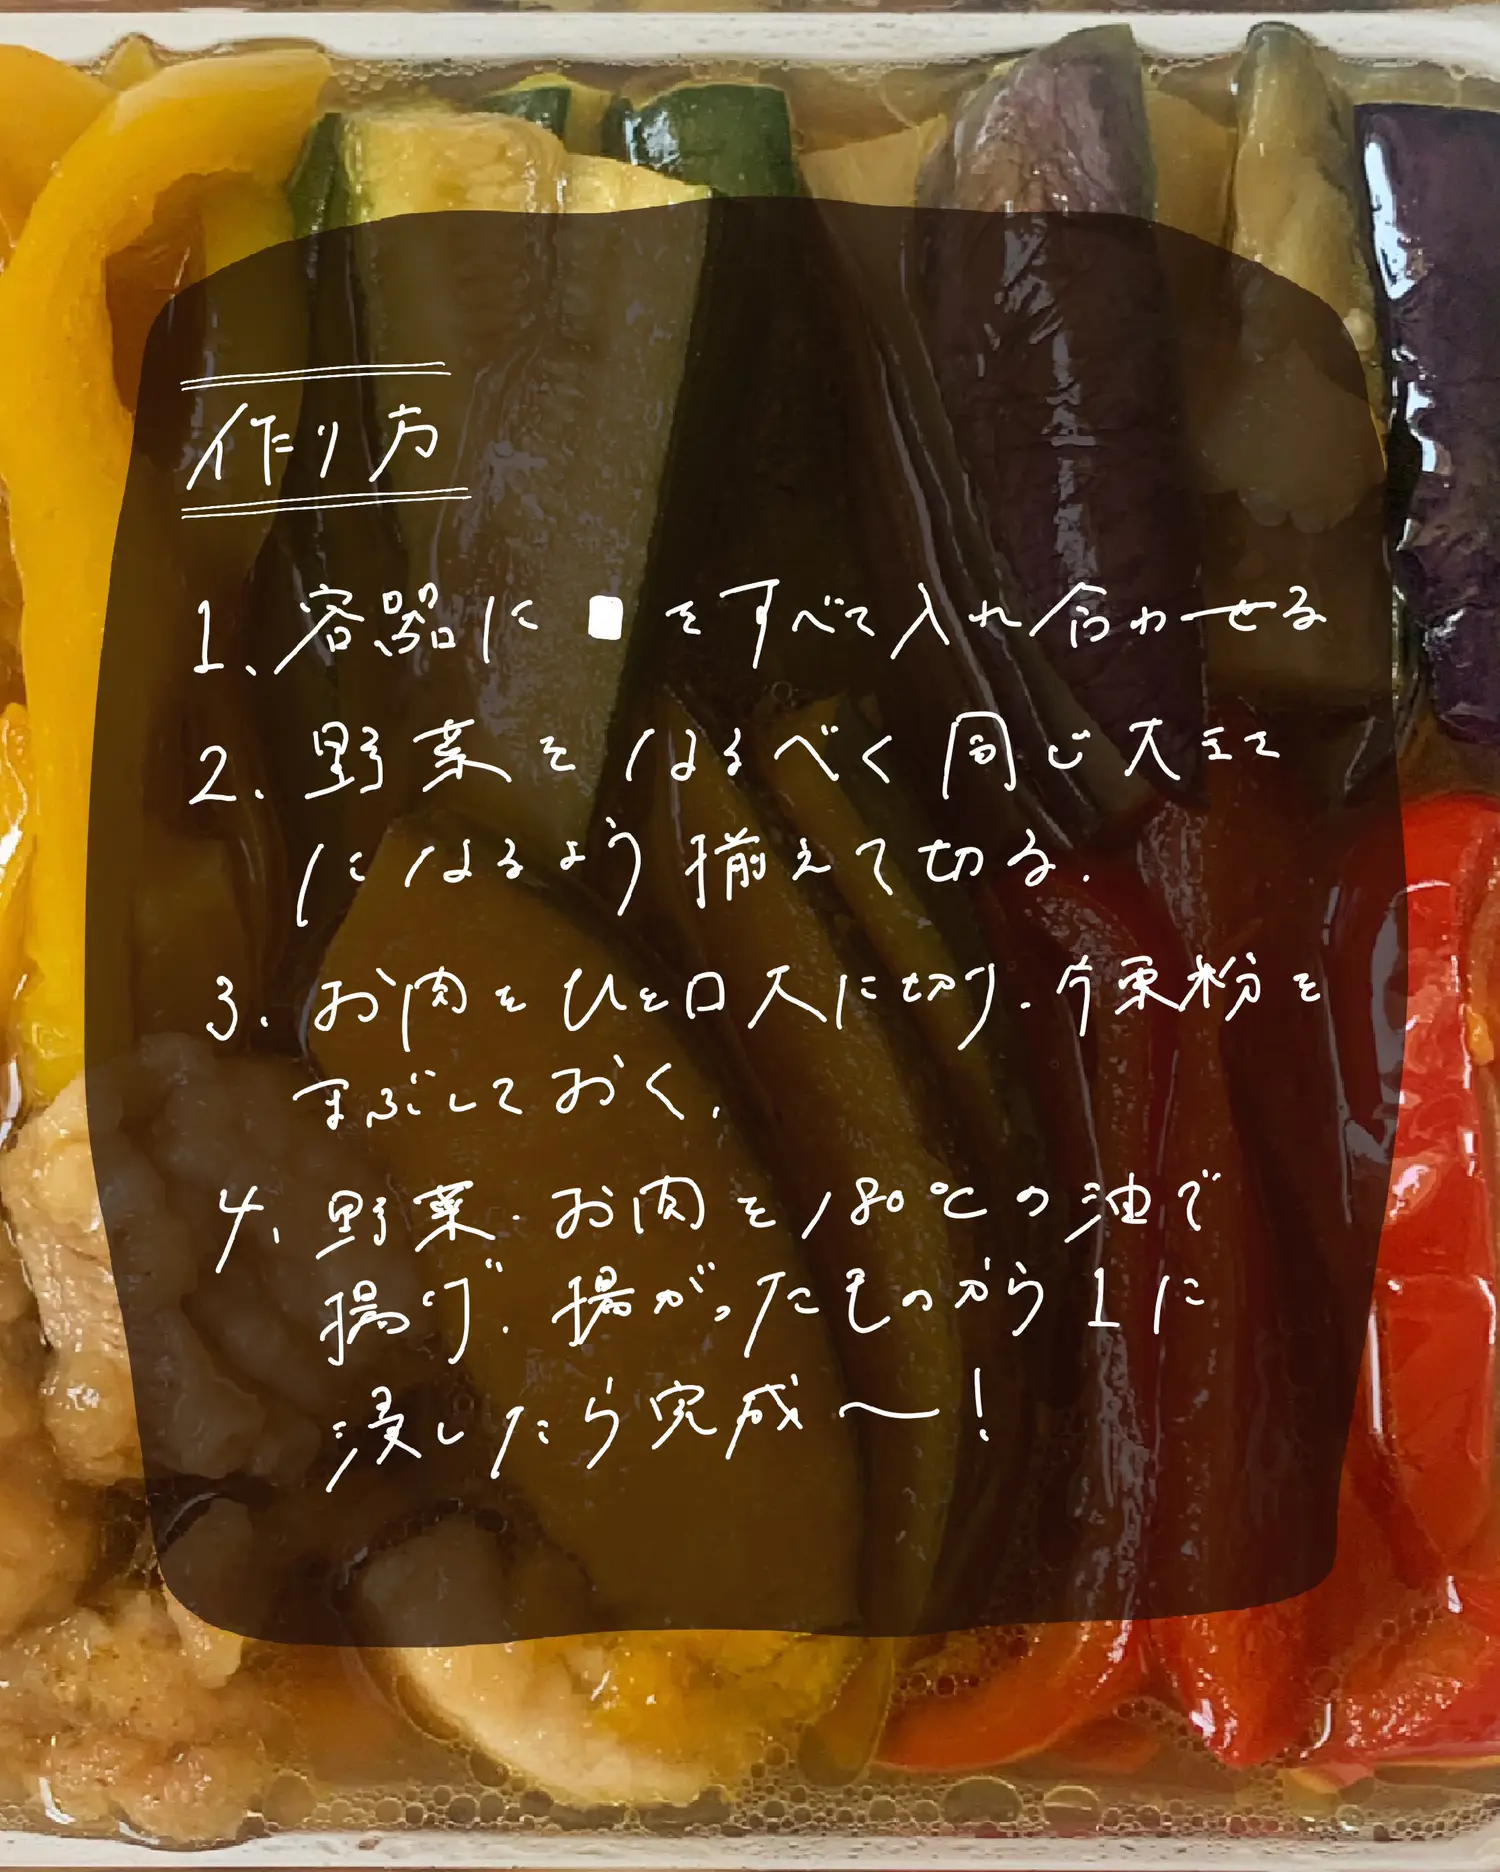 作り方
1. 容器に ■ をすべて入れ合わせる
2. 野菜をなるべく同じ大きさ
になるよう揃えて切る.
3. お肉をひと口大に切り.片栗粉を
まぶしておく.
4. 野菜.お肉を180℃の油で
揚げ.揚がったものから1に
浸したら完成〜!